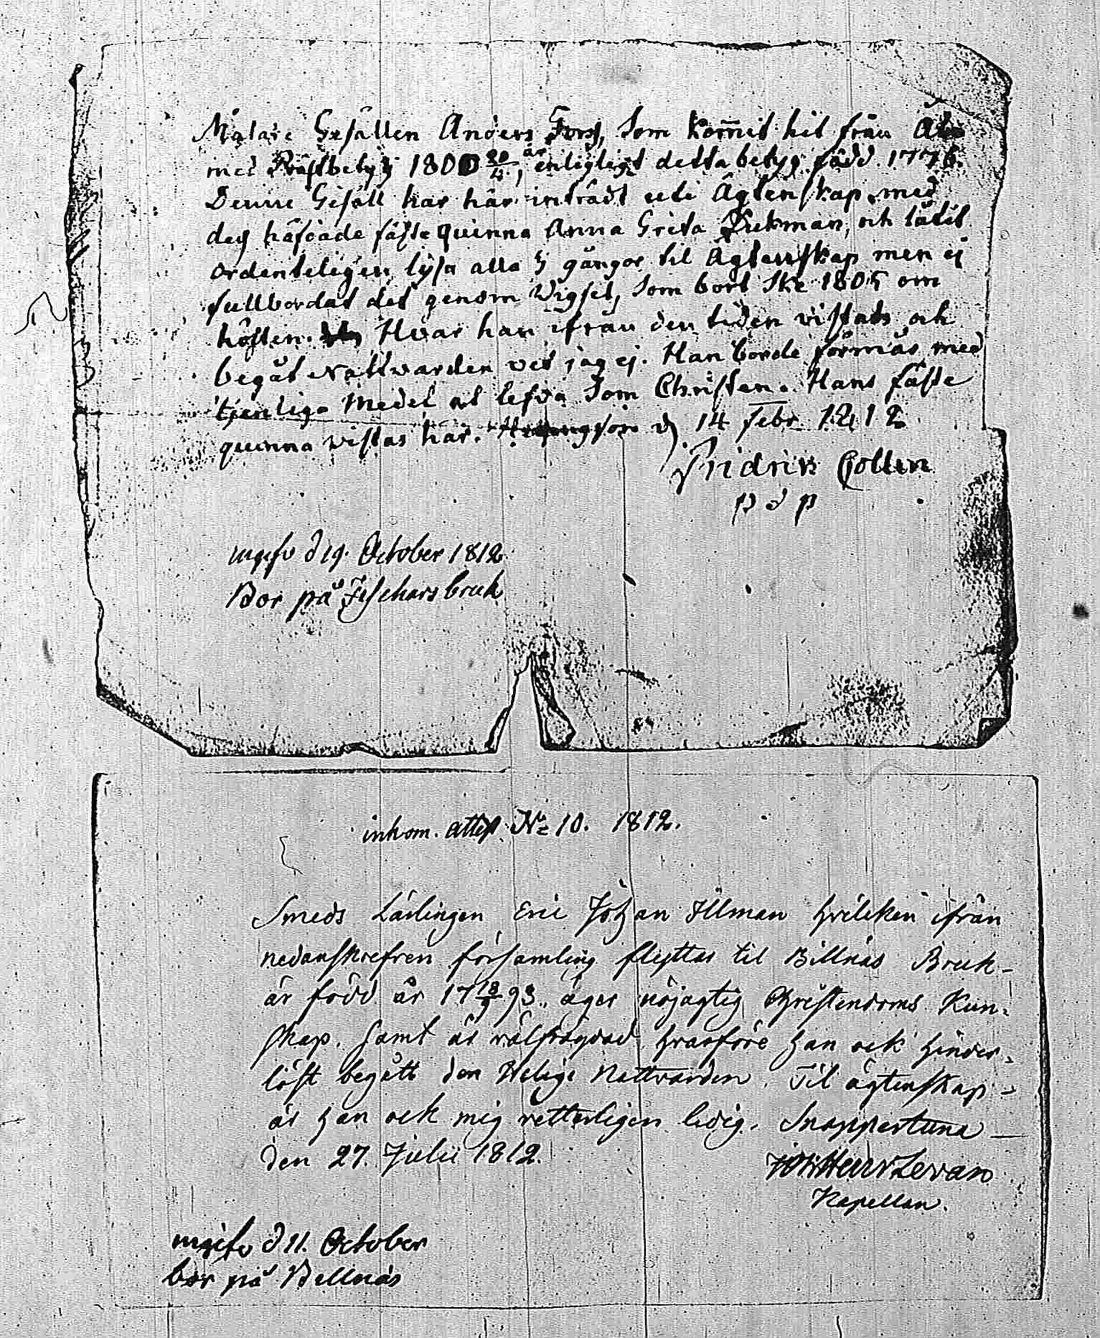 Målare Gesällen Anders Fors, som kommit hit från Åbo
med Prästbetyg 1800 20/4, är enligligt detta betyg född 1776.
Denne Gesäll har här inträdt uti Ägtenskap med
des häfdade fäste quinna Anna Greta Dickman, och låtit
ordenteligen lysa alla 3 gångor til Ägtenskap men ej
fullbordat det genom Vigsel, som bort ske 1805 om
hösten. Hvar han ifrån den tiden vistats och
begåt Nattvarden vet jag ej. Han borde förmås med
tjenliga Medel at lefva som Christen. Hans fäste
quinna vistas här. d. 14 Febr 1812
Fridrik Collin
p d p
ingifv d 19. October 1812
Bor på Fischarsbruk
inkom. attest No 10. 1812.
Smeds Lärlingen Eric Johan Illman hvilken ifrån
nedanskrefven församling flyttar til Billnäs Bruk-
är född år 17 18/9 93., äger nöjagtig Christendoms Kun-
skap, samt är välfrägdad hvarföre han ock hinder-
löst begått den Helige Nattvarden. Til ägtenskap-
är han ock mig vetterligen ledig. Snappertuna
den 27. Julii 1812.
Joh. Henr Levan
Kapellan.
ingifv d 11. October
bor på Bellnäs